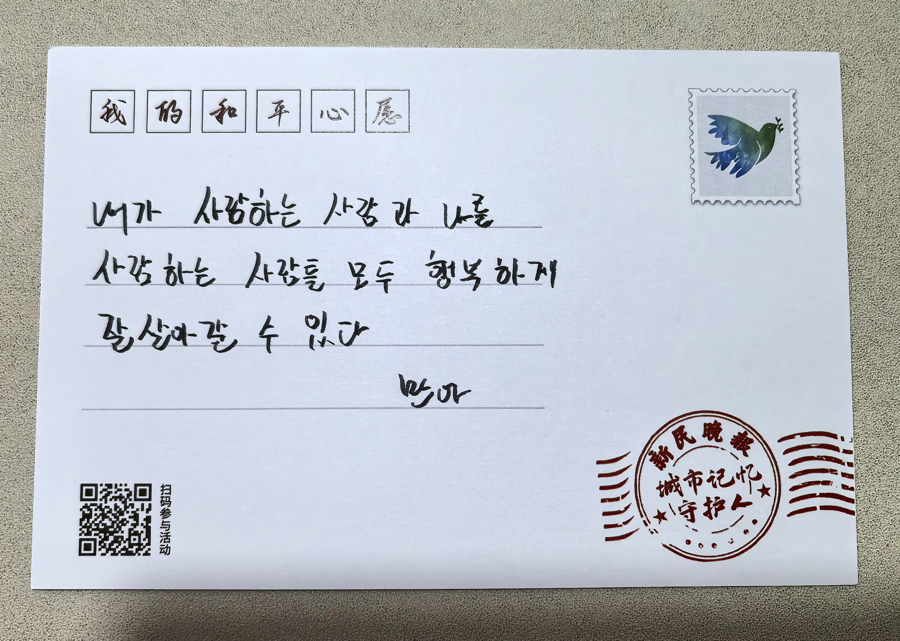 我的和平心愿
내가 사랑하는 사람과 나를
사랑하는 사람들 모두 행복하게
잘 살아갈 수 있다
민아
扫码参与活动
新民晚报
城市记忆
守护人